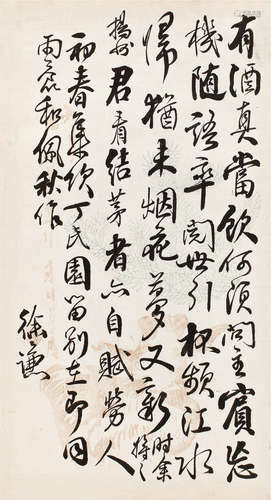 有酒真當飲何須問主賓忘
機隨語率閱世引杯頻江水
歸猶未烟花夢又新時余將之
揚州君看結茅者亦自賦勞人
初春集飲丁氏園留別在即同
雨鹿和佩秋作
徐謙